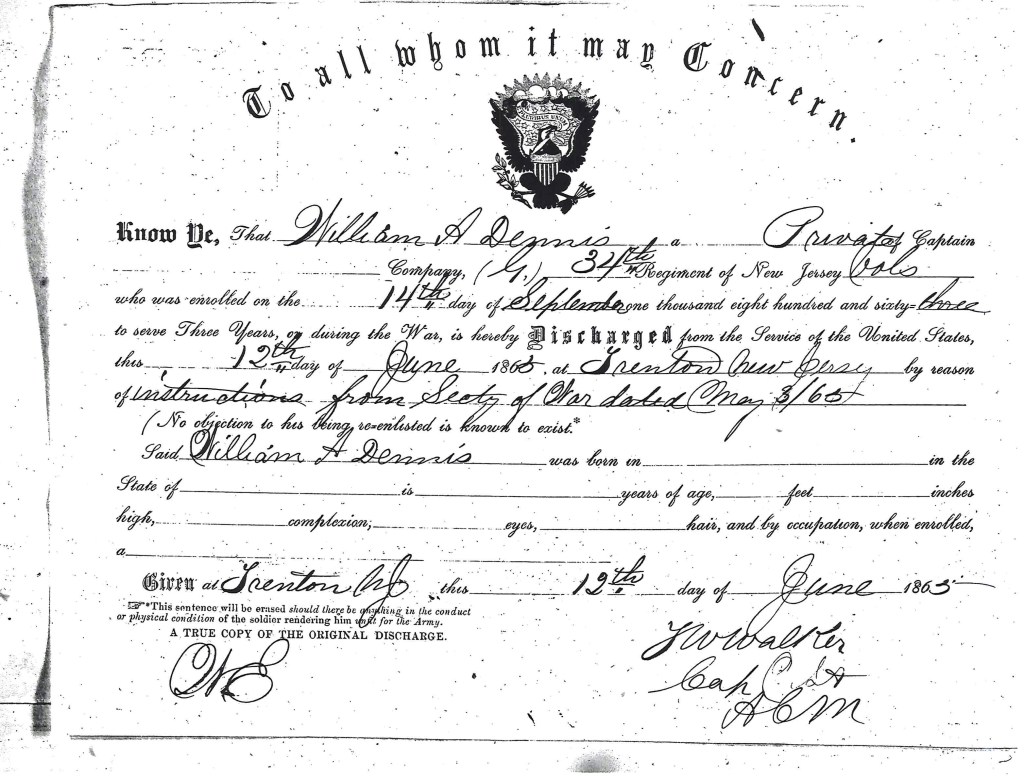 To all whom it may Concern.
Know Ye, That William A Dennis a Private of Captain
Company, (G,) 34th Regiment of New Jersey Vols
who was enrolled on the 14th day of September one thousand eight hundred and sixty-three
to serve Three Years, or during the War, is hereby Discharged from the Service of the United States,
this 12th day of June 1865, at Trenton New Jersy by reason
of instructions from Secty of War dated May 3/65
(No objection to his being re-enlisted is known to exist.*
Said William A Dennis was born in in the
State of is years of age, feet inches
high, complexion, eyes, hair, and by occupation, when enrolled,
a
Given at Trenton NJ this 12th day of June 1865
*This sentence will be erased should there be anything in the conduct
or physical condition of the soldier rendering him unfit for the Army.
A TRUE COPY OF THE ORIGINAL DISCHARGE.
WE
Walker
Cap
ACM